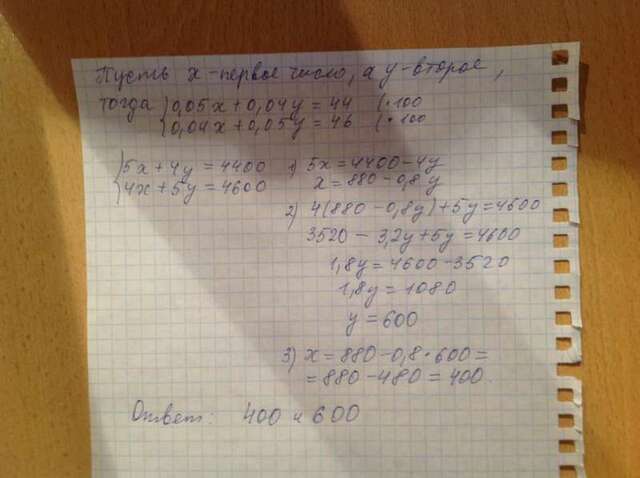 Пусть x - первое число, а y - второе,
тогда { 0,05x + 0,04y = 44 (•100
{ 0,04x + 0,05y = 46 (•100
{ 5x + 4y = 4400 1) 5x = 4400 - 4y
{ 4x + 5y = 4600 x = 880 - 0,8y
2) 4(880 - 0,8y) + 5y = 4600
3520 - 3,2y + 5y = 4600
1,8y = 4600 - 3520
1,8y = 1080
y = 600
3) x = 880 - 0,8 • 600 =
= 880 - 480 = 400.
Ответ: 400 и 600